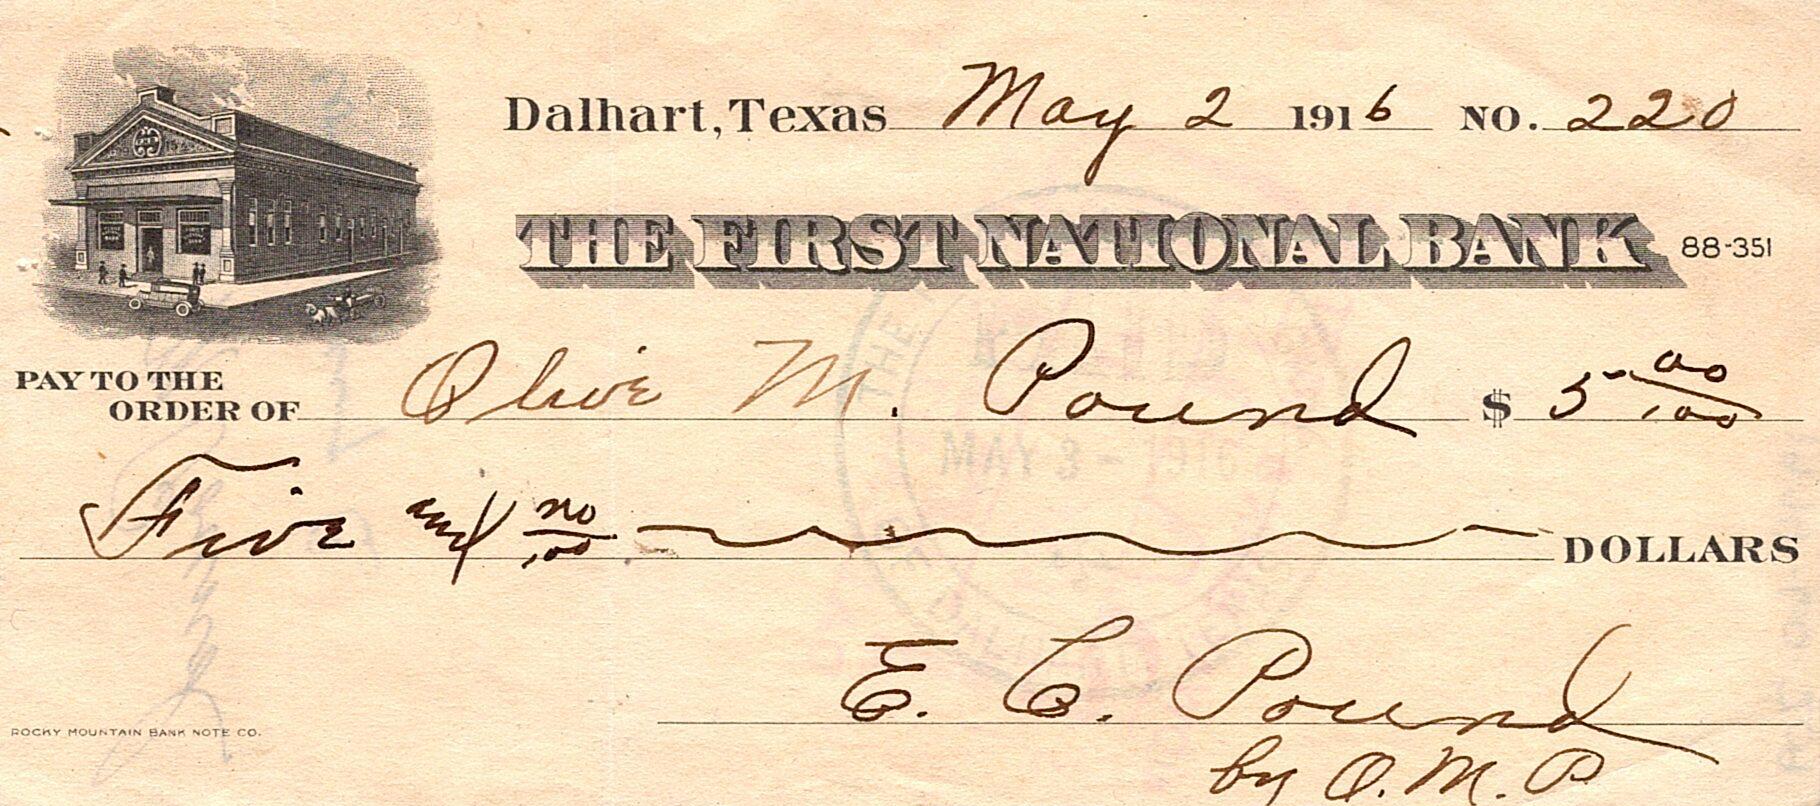 Dalhart, Texas May 2 1916 NO. 220
THE FIRST NATIONAL BANK 88-351
PAY TO THE
ORDER OF Olive M. Pound $ 5 00/100
Five and no/100 DOLLARS
MAY 3 - 1916
E. C. Pound
by O. M. P
ROCKY MOUNTAIN BANK NOTE CO.